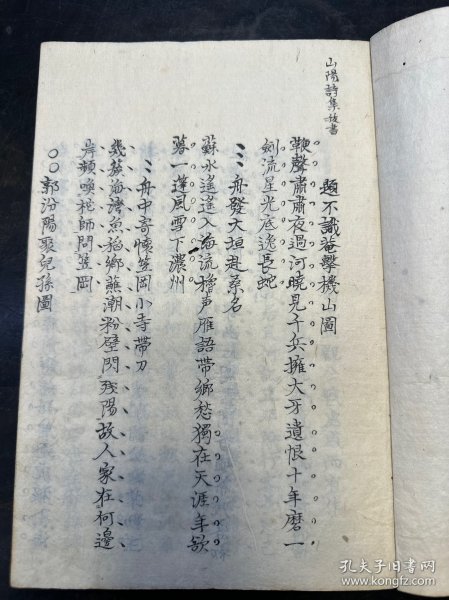 山陽詩集抜書
題不識菴擊機山圖
鞭聲肅肅夜過河曉見千兵擁大牙遺恨十年磨一
劍流星光底逸長蛇
舟發大垣赴桑名
蘇水遙遙入海流櫓声雁語帶鄉愁獨在天涯年欲
暮一蓬風雪下濃州
舟中寄懷笠岡小寺帶刀
幾
魚
鄉
潮粉壁閃残陽故人家在何邊
片頻喚柁師問笠岡
〇〇郭汾陽聚兒孫圖
孔夫子旧书网
www.kongfz.com